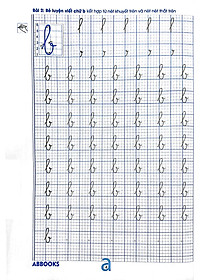 Bài 3: Bé luyện viết chữ b kết hợp từ nét khuyết trên và nét nét thắt trên
b
b b b b b b b
b b b b b b b
b b b b b b b
b b b b b b b
b b b b b b b
b b b b b b b
b b b b b b b
b b b b b b b
b
ABBOOKS
a